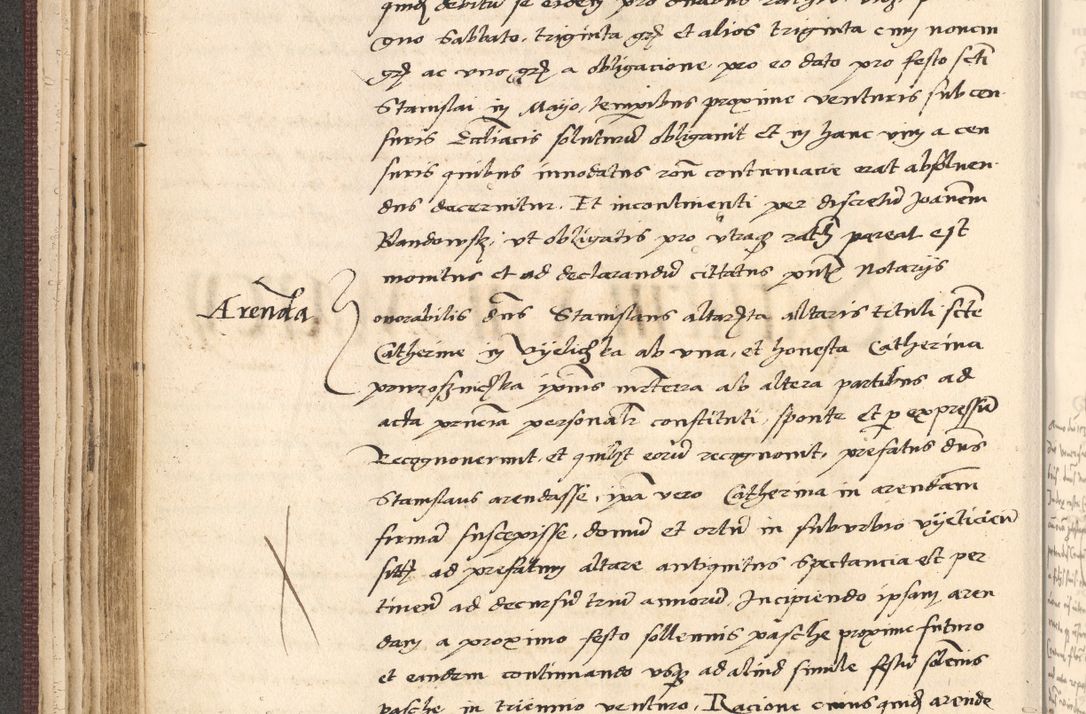 gno Sabbato, triginta grß et alios triginta cum nonem
grß ac uno grß a obligacione pro eo dato pro festo scti
Stanislai in Mayo, temporibus proxime venturis sub cen
suris Eccliacis soluturū obligavit Et in hanc vim a cen
suris quibus innodatus rōne contumacie erat absolven
dus decernitur. Et incontinenti per discretū Joannem
Randowsky, ut obligatis pro utraq ratħ pareat est
monitus et ad declarandū citatus pntß Notarijs
Arenda
onorabilis dns Stanislaus altarysta altaris tituli scte
Catherine in Vyelichka ab una, et honesta Catherina
ipsius ab altera partibus ad
acta prncia personalr constituti, sponte et p expressū
Recognoverunt, et quilibt eorū recognovit, prefatus dns
Stanislaus arendasse, ipa vero Catherina in arendam
firmā suscepisse, domū et ortū in suburbio vyeliciēn
sitß ad prefatum altare antiquitus spectancia et per
tinen ad decursū triū annorū, Incipiendo ipsam aren
dam a proximo festo sollennis pasche proxime futuro
et eandem continuando usq ad aliud simile festū solenis
pasche in triennio venturo, Racione cuius quidß arende